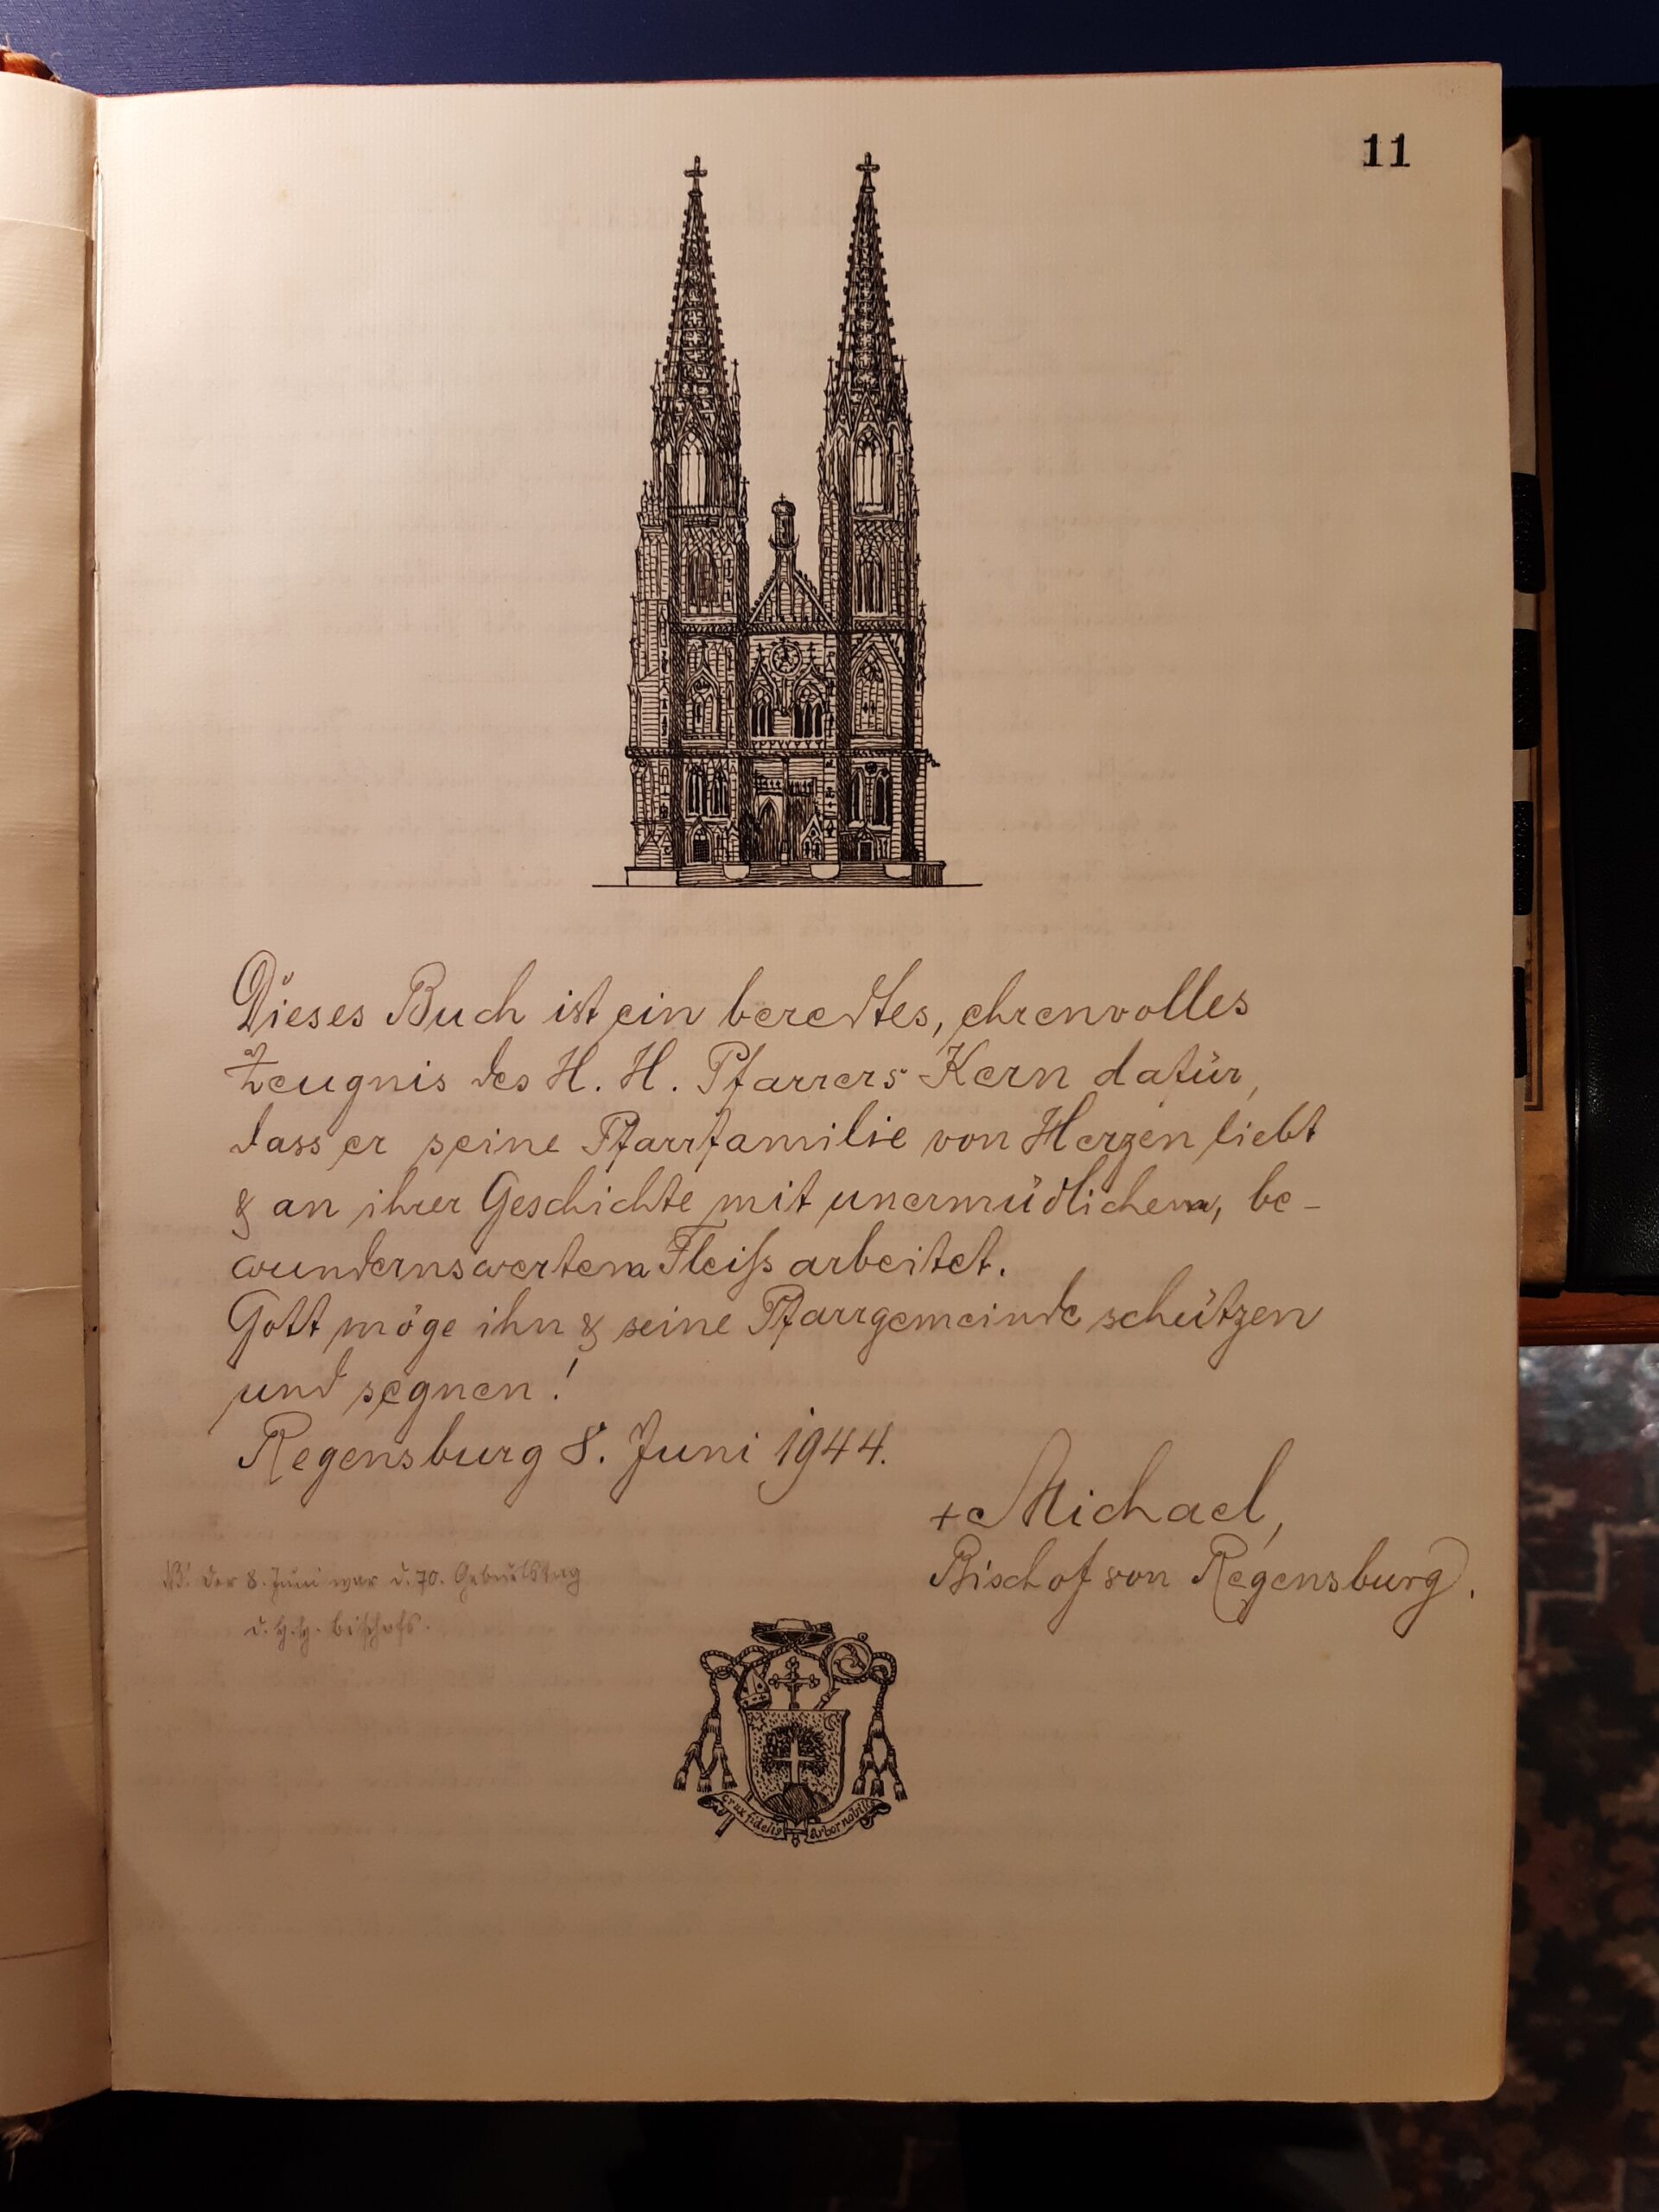 11
Dieses Buch ist ein beredtes, ehrenvolles
Zeugnis des H. H. Pfarrers Kern dafür,
dass er seine Pfarrfamilie von Herzen liebt
& an ihrer Geschichte mit unermüdlichem, be-
wundernswertem Fleiß arbeitet.
Gott möge ihn & seine Pfarrgemeinde schützen
und segnen!
Regensburg 8. Juni 1944.
+ Michael,
Bischof von Regensburg.
NB! der 8. Juni war d. 70. Geburtstag
d. H. H. Bischofs.
crux fidelis arbor nobilis